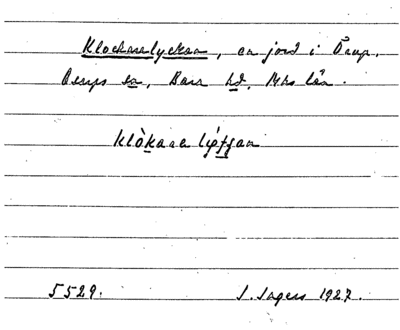 Klockarelyckan, en jord i Önap.
Oesups sn, Bara hd, Mhs län.
klòkara lýckan
5529. S. Sagers 1927.